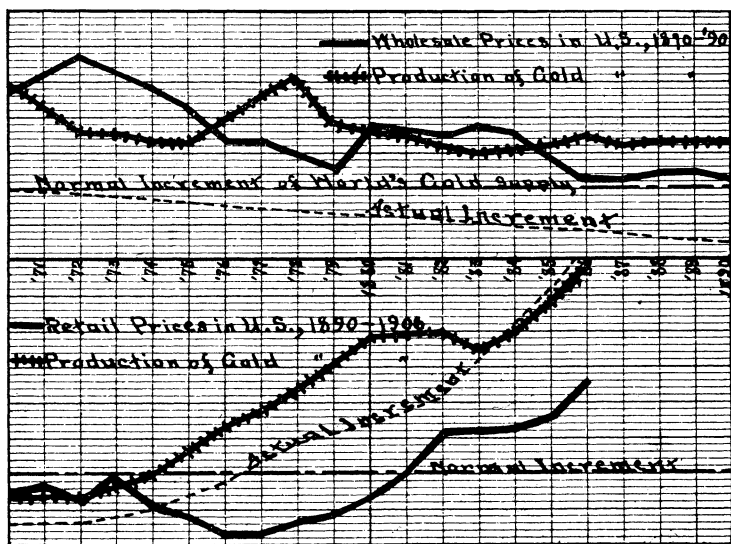 Wholesale Prices in U.S., 1890-'90
Production of Gold " "
Normal Increment of World's Gold Supply
Actual Increment
'70 '72 '73 '74 '75 '76 '77 '78 '79 1880 '81 '82 '83 '84 '85 '86 '87 '88 '89 1890
Retail Prices in U.S., 1890-1906
Production of Gold " "
Actual Increment
Normal Increment